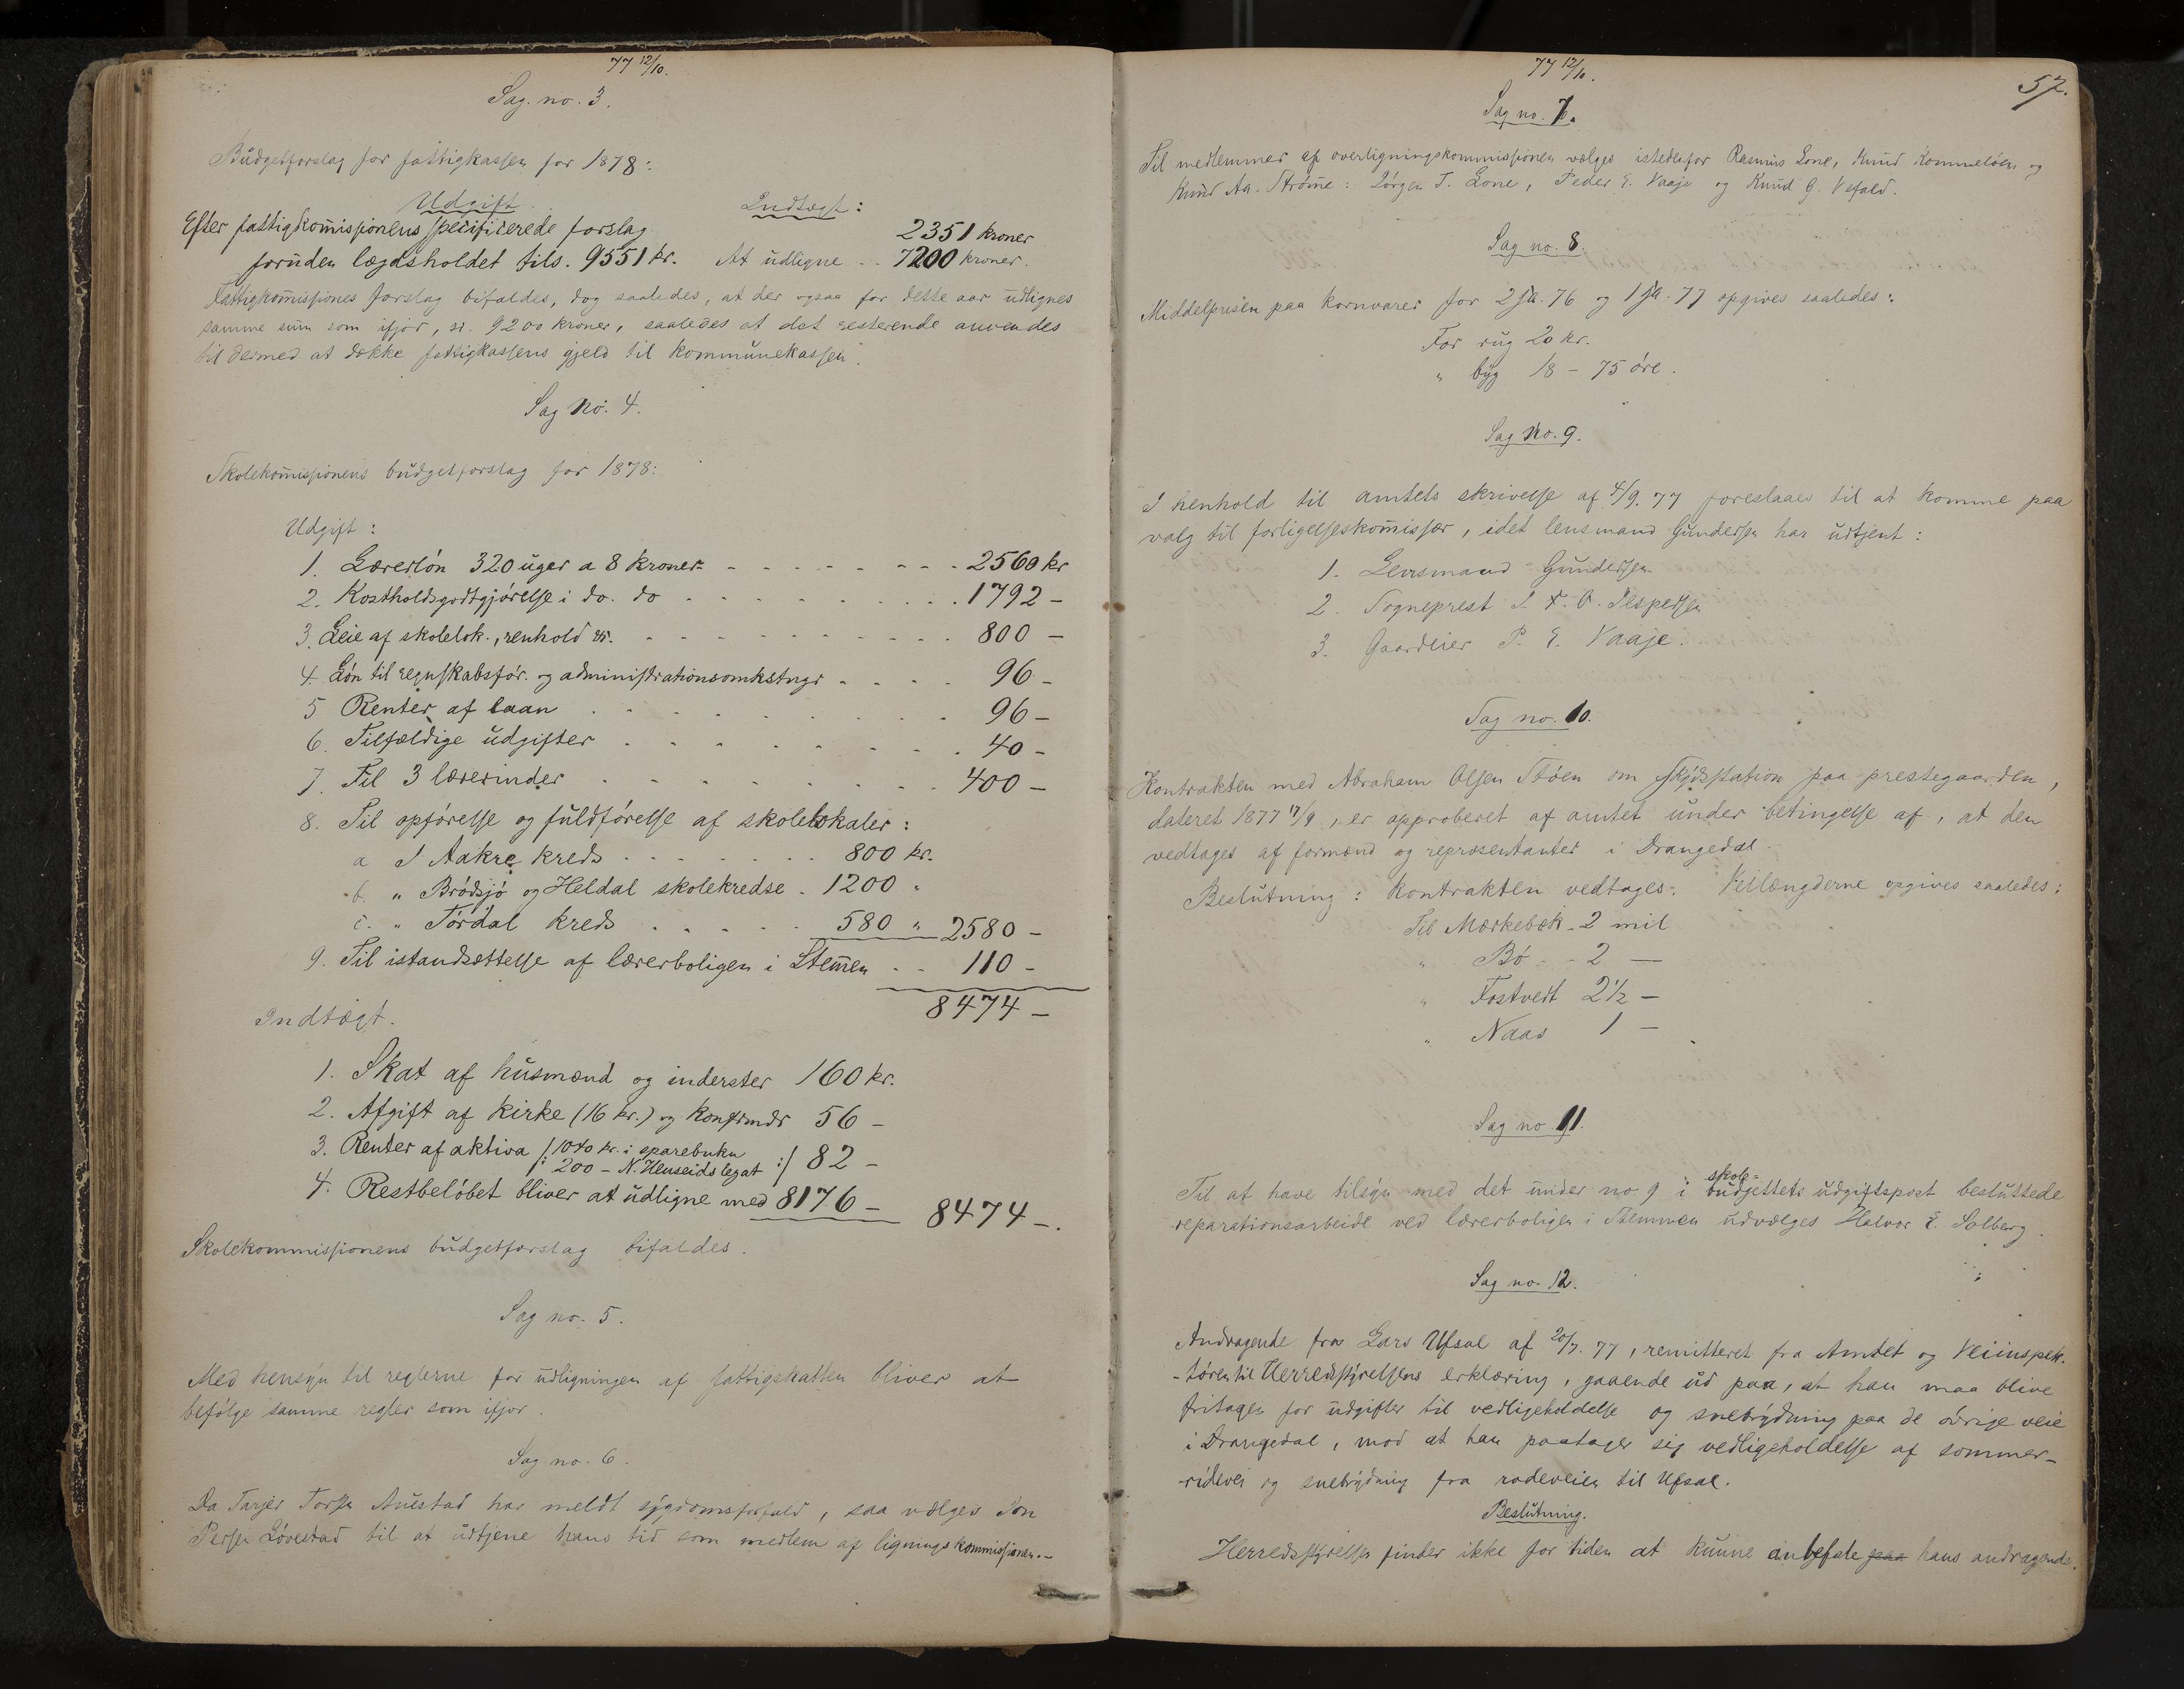 77 12/10.
Sag. no. 3.
Budgetforslag for fattigkassen for 1878:
Udgift. Indtægt:
Efter fattigkom̄issionens specificerede forslag 2351 kroner
foruden lægdsholdet tils. 9551 kr. At udligne .. 7200 kroner.
Fattigkom̄issiones forslag bifaldes, dog saaledes, at der ogsaa for dette aar udlignes
samme sum som ifjor, sc. 9200 kroner, saaledes at det resterende anvendes
til dermed at dække fattigkassens gjeld til kommunekassen.
Sag No. 4.
Skolekom̄issionens budgetforslag for 1878:
Udgift:
1. Lærerløn 320 uger a 8 kroner - - - - - - - - 2560 kr
2. Kostholdsgodtgjørelse i do. do - - - - - - - - 1792 -
3. Leie af skolelok., renhold &c. - - - - - - - - 800 -
4. Løn til regnskabsfør. og administrationsomkstngr - - - - 96 -
5 Renter af laan . - - - - - - - 96 -
6. Tilfældige udgifter . - - - - - - - 40 -
7. Til 3 lærerinder . - - - - - - - 400 -
8. Til opførelse og fuldførelse af skolelokaler:
a I Aakre kreds . - - - - - - 800 kr.
b. " Brødsjø og Heldal skolekredse . 1200 "
c. " Tørdal kreds . - - - - 580 " 2580 -
9. Til istandsættelse af lærerboligen i Stem̄en - - 110 -
8474 -
Indtægt.
1. Skat af husmænd og inderster 160 kr.
2. Afgift af kirke (16 kr.) og konfrmdr 56 -
3. Renter af aktiva /: 1040 kr. i sparebnkn
200 - N. Henseids legat :/ 82 -
4. Restbeløbet bliver at udligne med 8176 - 8474 -.
Skolekommissionens budgetforslag bifaldes.
Sag no. 5.
Med hensyn til reglerne for udligningen af fattigskatten bliver at
befølge samme regler som ifjor.
Sag no. 6.
Da Tarjer Torsen Austad har meldt sygdomsforfald, saa vælges Jon
Persen Løvestad til at udtjene hans tid som medlem af ligningskommissionen.-
77 12/10.
57.
Sag no. 7.
Til medlemmer af overligningskommissionen vælges istedenfor Rasmus Lone, Knud og
Knud Aa. Strøm̄e: Jørgen T. Lone, Peder E. Vaaje og Knud G. Vefald.
Sag no. 8.
Middelprisen paa kornvarer for 2 ja. 76 og 1 ja. 77 opgives saaledes:
For rug 20 kr.
" byg 18 - 75 øre.
Sag No. 9.
I henhold til amtets skrivelse af 4/9. 77 foreslaaes til at komme paa
valg til forligelseskom̄issær, idet lensmand Gundersen har udtjent:
1. Lensmand Gundersen
2. Sogneprest J. F. O. Jespersen
3. Gaardeier P. E. Vaaje.
Sag no. 10.
Kontrakten med Abraham Olsen Støen om skydsstation paa prestegaarden,
dateret 1877 17/9, er approberet af amtet under betingelse af, at den
vedtages af formænd og repræsentanter i Drangedal.
Beslutning: Kontrakten vedtages. Veilængderne opgives saaledes:
Til Mærkebæk - 2 mil
" Bø - - 2 —
" Fostvedt 2 1/2 -
" Naas 1 -
Sag no 11.
skole-
Til at have tilsyn med det under no 9 i budjettets udgiftspost besluttede
reparationsarbeide ved lærerboligen i Stemmen udvælges Halvor E. Solberg.
Sag no. 12.
Andragende fra Lars Ufsal af 20/7. 77, remitteret fra Amtet og Veiinspek-
-tøren til Herredsstyrelsens erklæring, gaaende ud paa, at han maa blive
fritagen for udgifter til vedligeholdelse og snebrydning paa de øvrige veie
i Drangedal, mod at han paatager sig vedligeholdelse af sommer-
-ridevei og snebrydning fra rodeveien til Ufsal.
Beslutning.
Herredsstyrelsen finder ikke for tiden at kunne anbefale paa hans andragende.